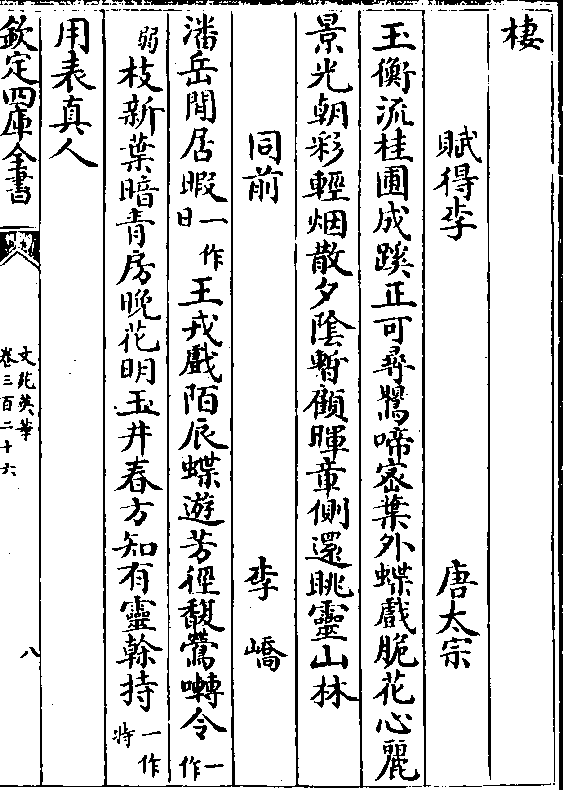 棲
賦得李 唐太宗
玉衡流桂圃成蹊正可尋鸎啼密葉外蝶戲脆花心麗
景光朝彩輕烟散夕陰暫顧暉章側還眺靈山林
同前 李嶠
潘岳閒居暇一作日王戎戲陌辰蝶遊芳徑馥鶯囀令一作
弱枝新葉暗青房晚花明玉井春方知有靈幹持一作将
用表真人
欽定四庫全書
文苑英華
卷三百二十六
八